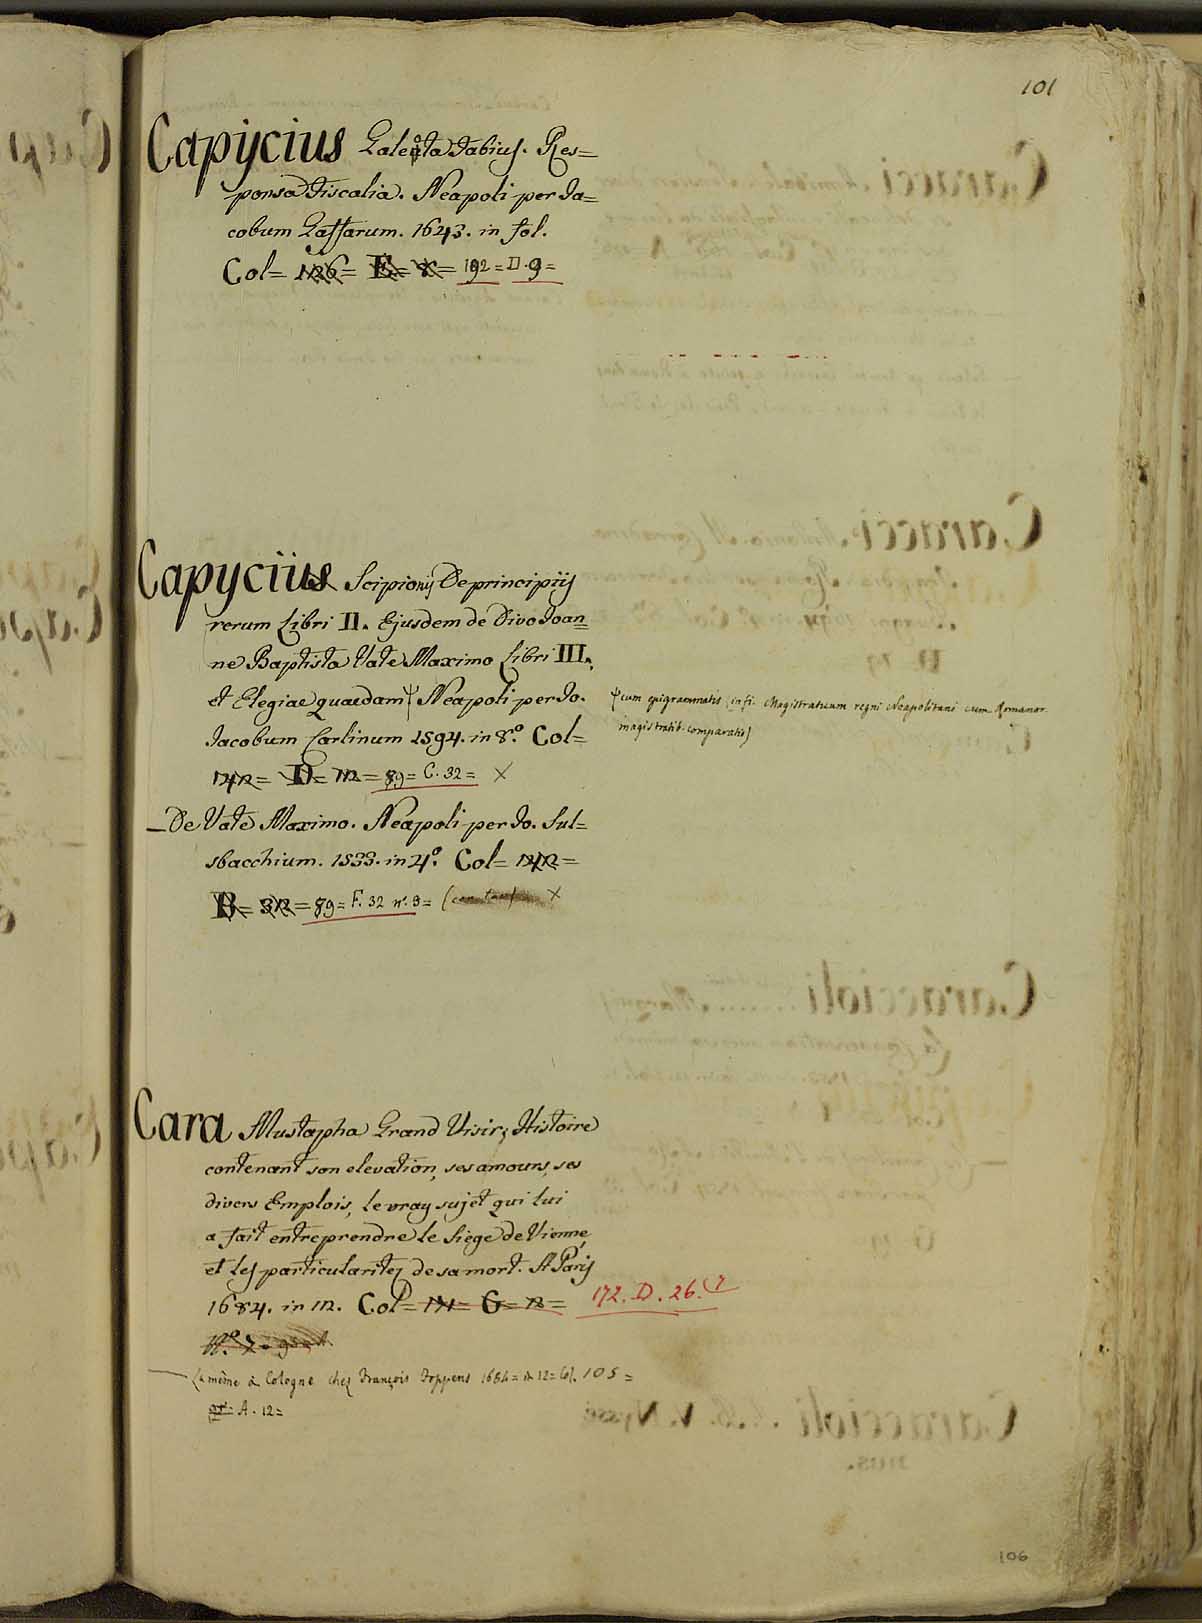 101
Capycius Galeota Fabius. Res=
ponsa Fiscalia. Neapoli per Ja=
cobum Gaffarum. 1643. in fol.
Col= 126= E= 8= 192= D. 9=
Capycius Scipionis De principiis
rerum Libri II. Ejusdem de Divo Joan=
ne Baptista Vate Maximo Libri III.
et Elegiae quaedam Ψ Neapoli per Jo.
Ψ cum epigrammatis (in fi. Magistratuum regni Neapolitani cum Romanor.
magistratib. comparatis)
Jacobum Carlinum 1594. in 8.º Col=
142= D= 112= 89= C. 32= X
— De Vate Maximo. Neapoli per Jo. Sul=
sbacchium. 1533. in 4.º Col= 142=
B= 312= 89= F. 32 nº. 9= X
Cara Mustapha Grand Visir; Histoire
contenant son elevation, ses amours, ses
divers Emplois, le vray sujet qui lui
a fait entreprendre le Siege de Vienne,
et les particularitez de sa mort. A Paris
1684. in 12. Col= 171= G= 12= 172. D. 26. 7
Nº. 7=
— La même à Cologne chez François Foppens 1684= in 12= Col. 105=
A. 12=
106